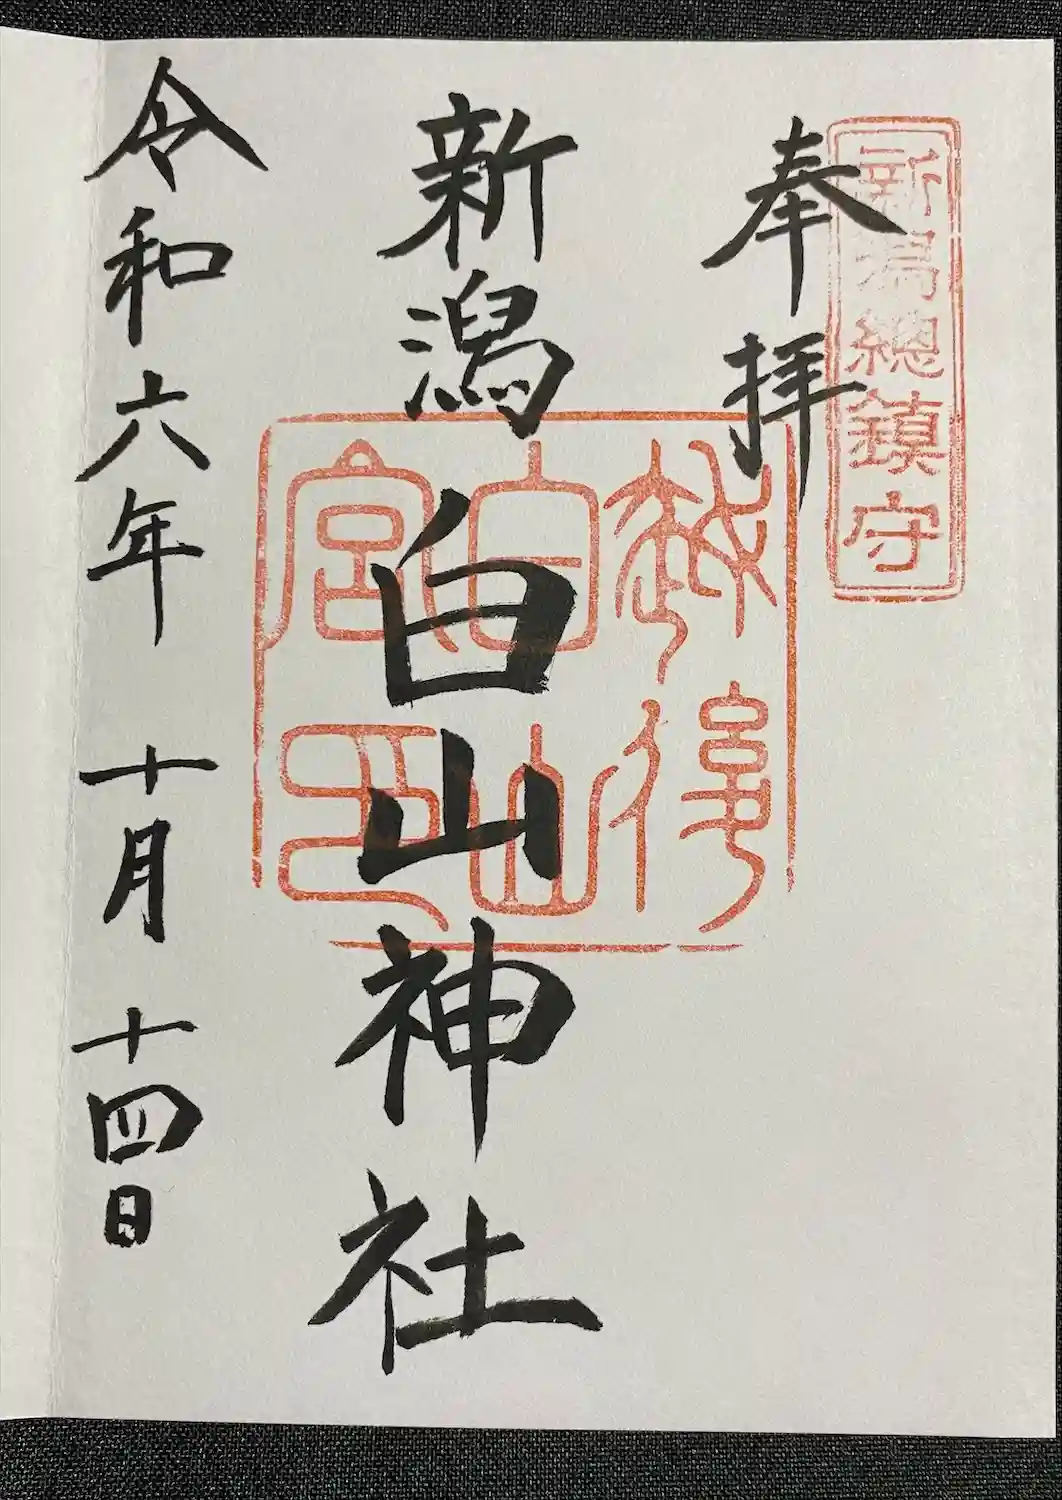 新潟總鎮守
奉拝
越後
白山
宮印
新潟白山神社
令和六年 十月 十四日